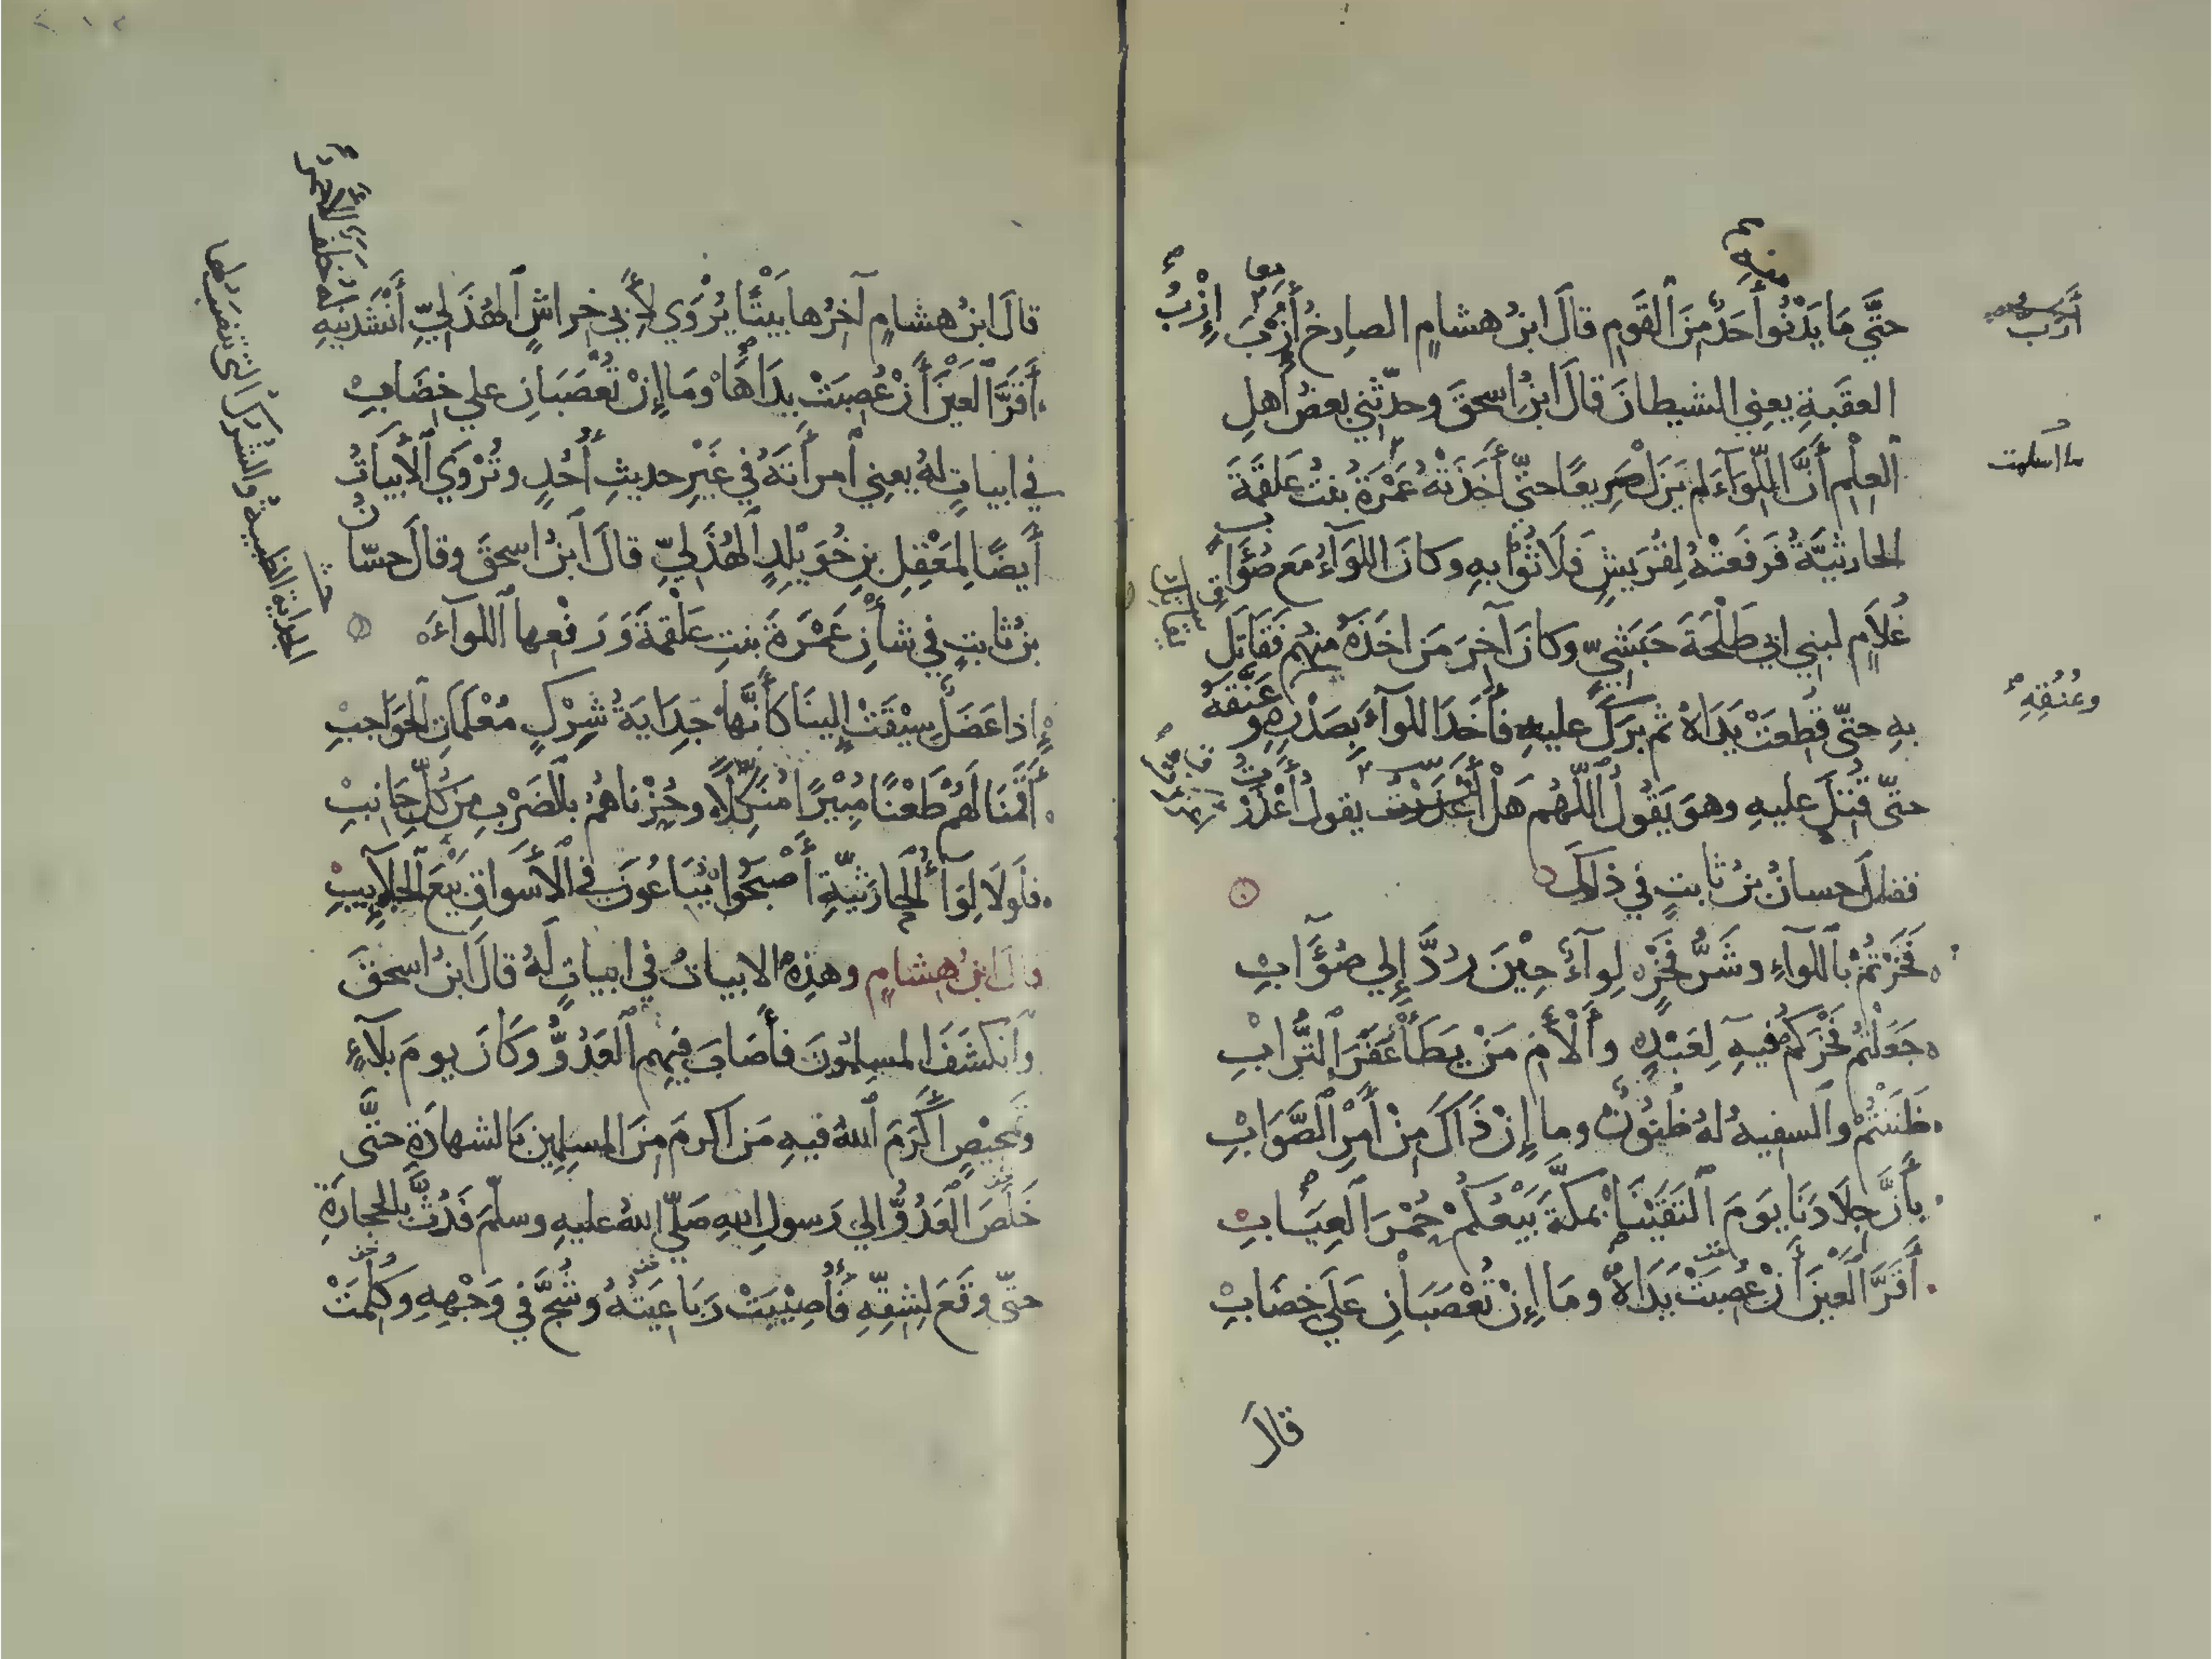 حَتَّى مَا يَدْنُوا أَحَدٌ مِنَ القَوم قالَ ابنُ هشامٍ الصارخُ أَزَبُّ
العقَبةِ يعنِي الشيطانَ قالَ ابنُ اسحقَ وحدّثني بعضُ أهلِ
العِلْمِ أَنَّ اللِّوَآءَ لم يَزَلْ صَرِيعًا حتّى أَخَذَتْهُ عَمْرَةُ بنتُ عَلقَمَةَ
الحارثيَّةُ فَرفَعَتْهُ لِقُرَيشٍ فَلَاثُوا بهِ وكانَ اللوَآءُ مَع صُؤَابٍ
غُلاَمٍ لبني ابي طَلْحَةَ حَبَشيّ وكانَ آخِرَ مَن اخَذَهُ منهُم فَقَاتَل
بهِ حتّى قُطِعَتْ يَدَاهُ ثم بَرَكَ عليهِ فأَخَذَ اللوآءَ بِصَدْرِهِ و
عُنُقِهِ
حتّى قُتِلَ عليهِ وهوَ يَقُولُ اللّهُم هَلْ أَعْذَرْتُ يقولُ أَعْذَرْتُ
فقالَ حسانُ بنُ ثابتٍ في ذلكَ
فَخَرْتُمْ باللوآءِ وشَرُّ فَخْرٍ لِوآءٌ حِيْنَ رُدَّ إِلي صُؤَابِ
جَعَلْتُم فَخْرَكُم فيهِ لِعَبْدٍ وأَلْأَمِ مَنْ يَطَأْ عَفَرَ التُّرابِ
ظَنَنْتُمْ والسفيهُ لهُ ظُنُونٌ وما إِنْ ذَاكَ مِنْ أَمْرِ الصَّوَابِ
بأَنَّ جِلَادَنَا يَومَ التَقَيْنَا بمكَّةَ بَيْعُكُمْ حُمْرَ العِيَابِ
أَقَرَّ العَيْنَ أَنْ عُصِبَتْ يَدَاهُ ومَا إِنْ تُعْصَبَانِ عَلَي خِضَابِ
قالَ
وعُنُقِهِ
قالَ ابنُ هشامٍ آخرُها بَيْتًا يُرْوَي لأَبي خراشٍ الهُذَليِّ أَنْشَدَنِيهِ
لهُ خلف الأحمر
أَقَرَّ العَيْنَ أَنْ عُصِبَتْ يَدَاهَا ومَا إِنْ تُعْصَبَانِ علي خِضَابِ
في ابياتٍ لهُ يعنِي امرأَتَهُ في غَيْرِ حديثِ أُحُدٍ وتُرْوَي الأَبياتُ
أَيضًا لِمَعْقِلِ بنِ خُوَيْلِدٍ الهُذَليِّ قالَ ابنُ اسحقَ وقالَ حسّانُ
بنُ ثابتٍ في شأنِ عَمْرَةَ بنتِ عَلْقَمَةَ وَرَفْعِها اللوآءَ
إذا عَضَلٌ سِيْقَتْ إِلينَا كأَنَّها جِدَايَةُ شِرْكٍ مُعْلَمَاتِ الحَوَاجبِ
أَقَمْنَا لَهُمْ طَعْنًا مُبِيْرًا مُنَكِّلاً وحُزْنَاهُمُ بالضَرْبِ مِن كُلِّ جَانِبِ
فلَولَا لِوَآءُ الحارِثيَّةِ أَصْبَحُوا يُبَاعُونَ في الأَسواقِ بَيْعَ الجَلآيِبِ
قالَ ابنُ هِشامٍ وهذهِ الابياتُ في ابياتٍ لَهُ قالَ ابنُ اسحقَ
وانكشَفَ المسلمُونَ فأَصَابَ فيهِم العَدُوُّ وكَانَ يومَ بَلآءٍ
وتمحيْصٍ أَكْرَمَ اللهُ فيهِ مَن اكرمَ مِنَ المسلِمِين بالشهادَةِ حتَّى
خَلَصَ العَدُوُّ إلي رَسولِ اللهِ صَلّي اللهُ عليهِ وسلّمَ فَدُثَّ بالحجارَةِ
حتّى وقَعَ لِشِقِّهِ فَأُصِيْبَتْ رَبَاعِيَتُهُ وشُجَّ في وَجْهِهِ وكُلِمَتْ
الجداية الظبية والشرك التي تنصب لها